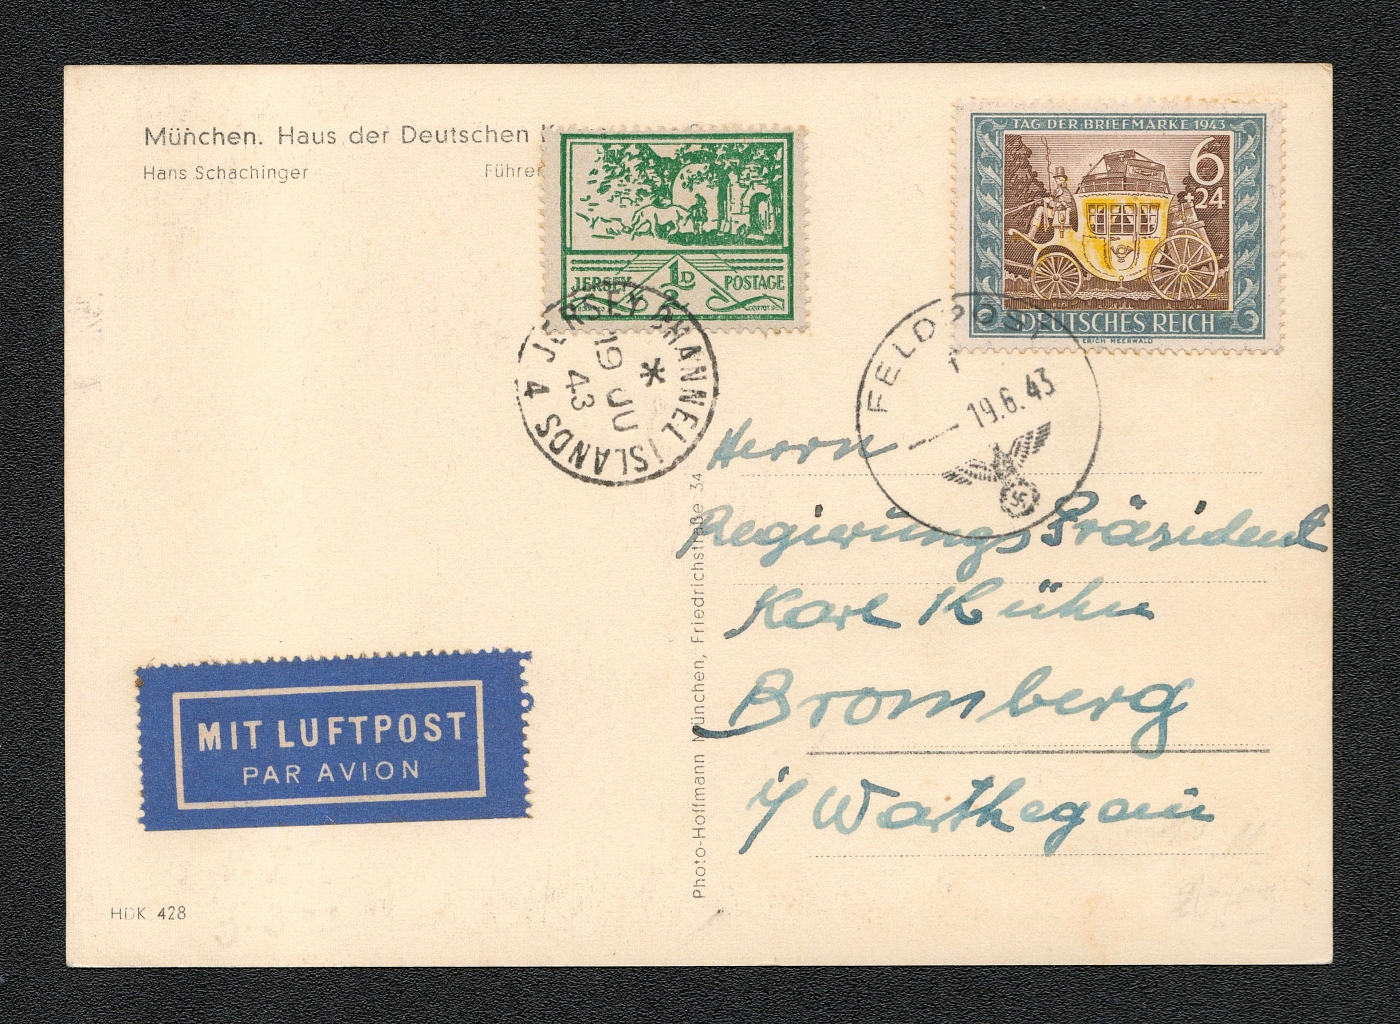 München. Haus der Deutschen
Hans Schachinger
JERSEY ½D POSTAGE
TAG DER BRIEFMARKE 1943
6
+24
DEUTSCHES REICH
ERICH MEERWALD
JERSEY CHANNEL ISLANDS 4
19 JU
43
FELDPOST
19.6.43
Herrn
Regierungs Präsident
Karl Kühn
Bromberg
i/ Warthegau
Photo-Hoffmann München, Friedrichstraße 34
MIT LUFTPOST
PAR AVION
HDK 428